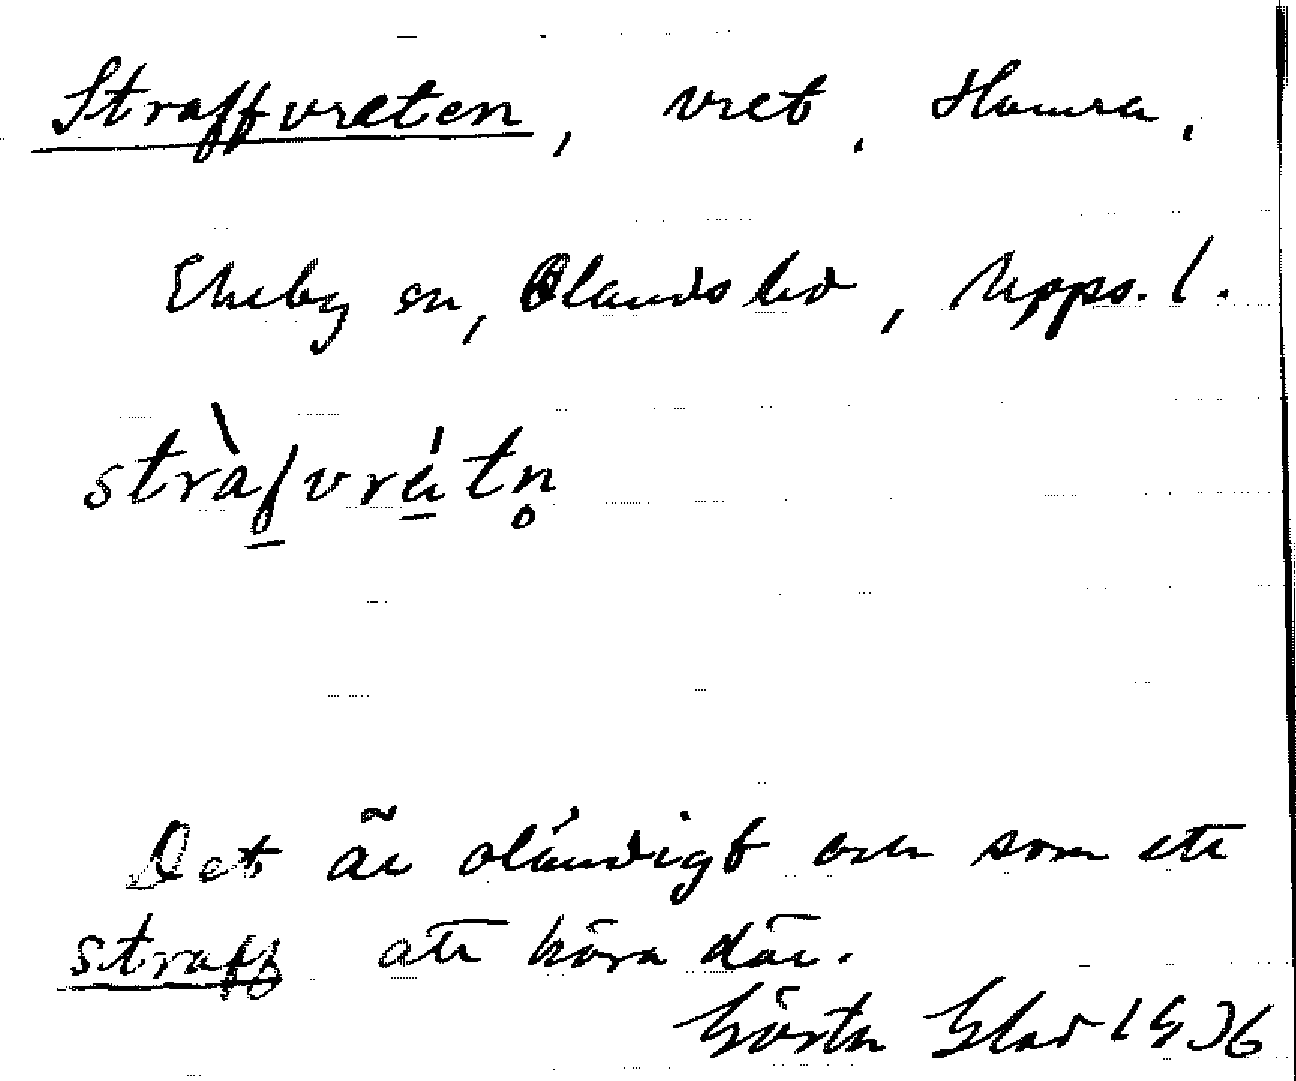 Straffvreten, vret. Hamra.
Ekeby sn, Olands hd, Upps. l.
stràfvrǽtn̥
Det är oländigt och som ett
straff att köra där.
Gösta Glad 1936